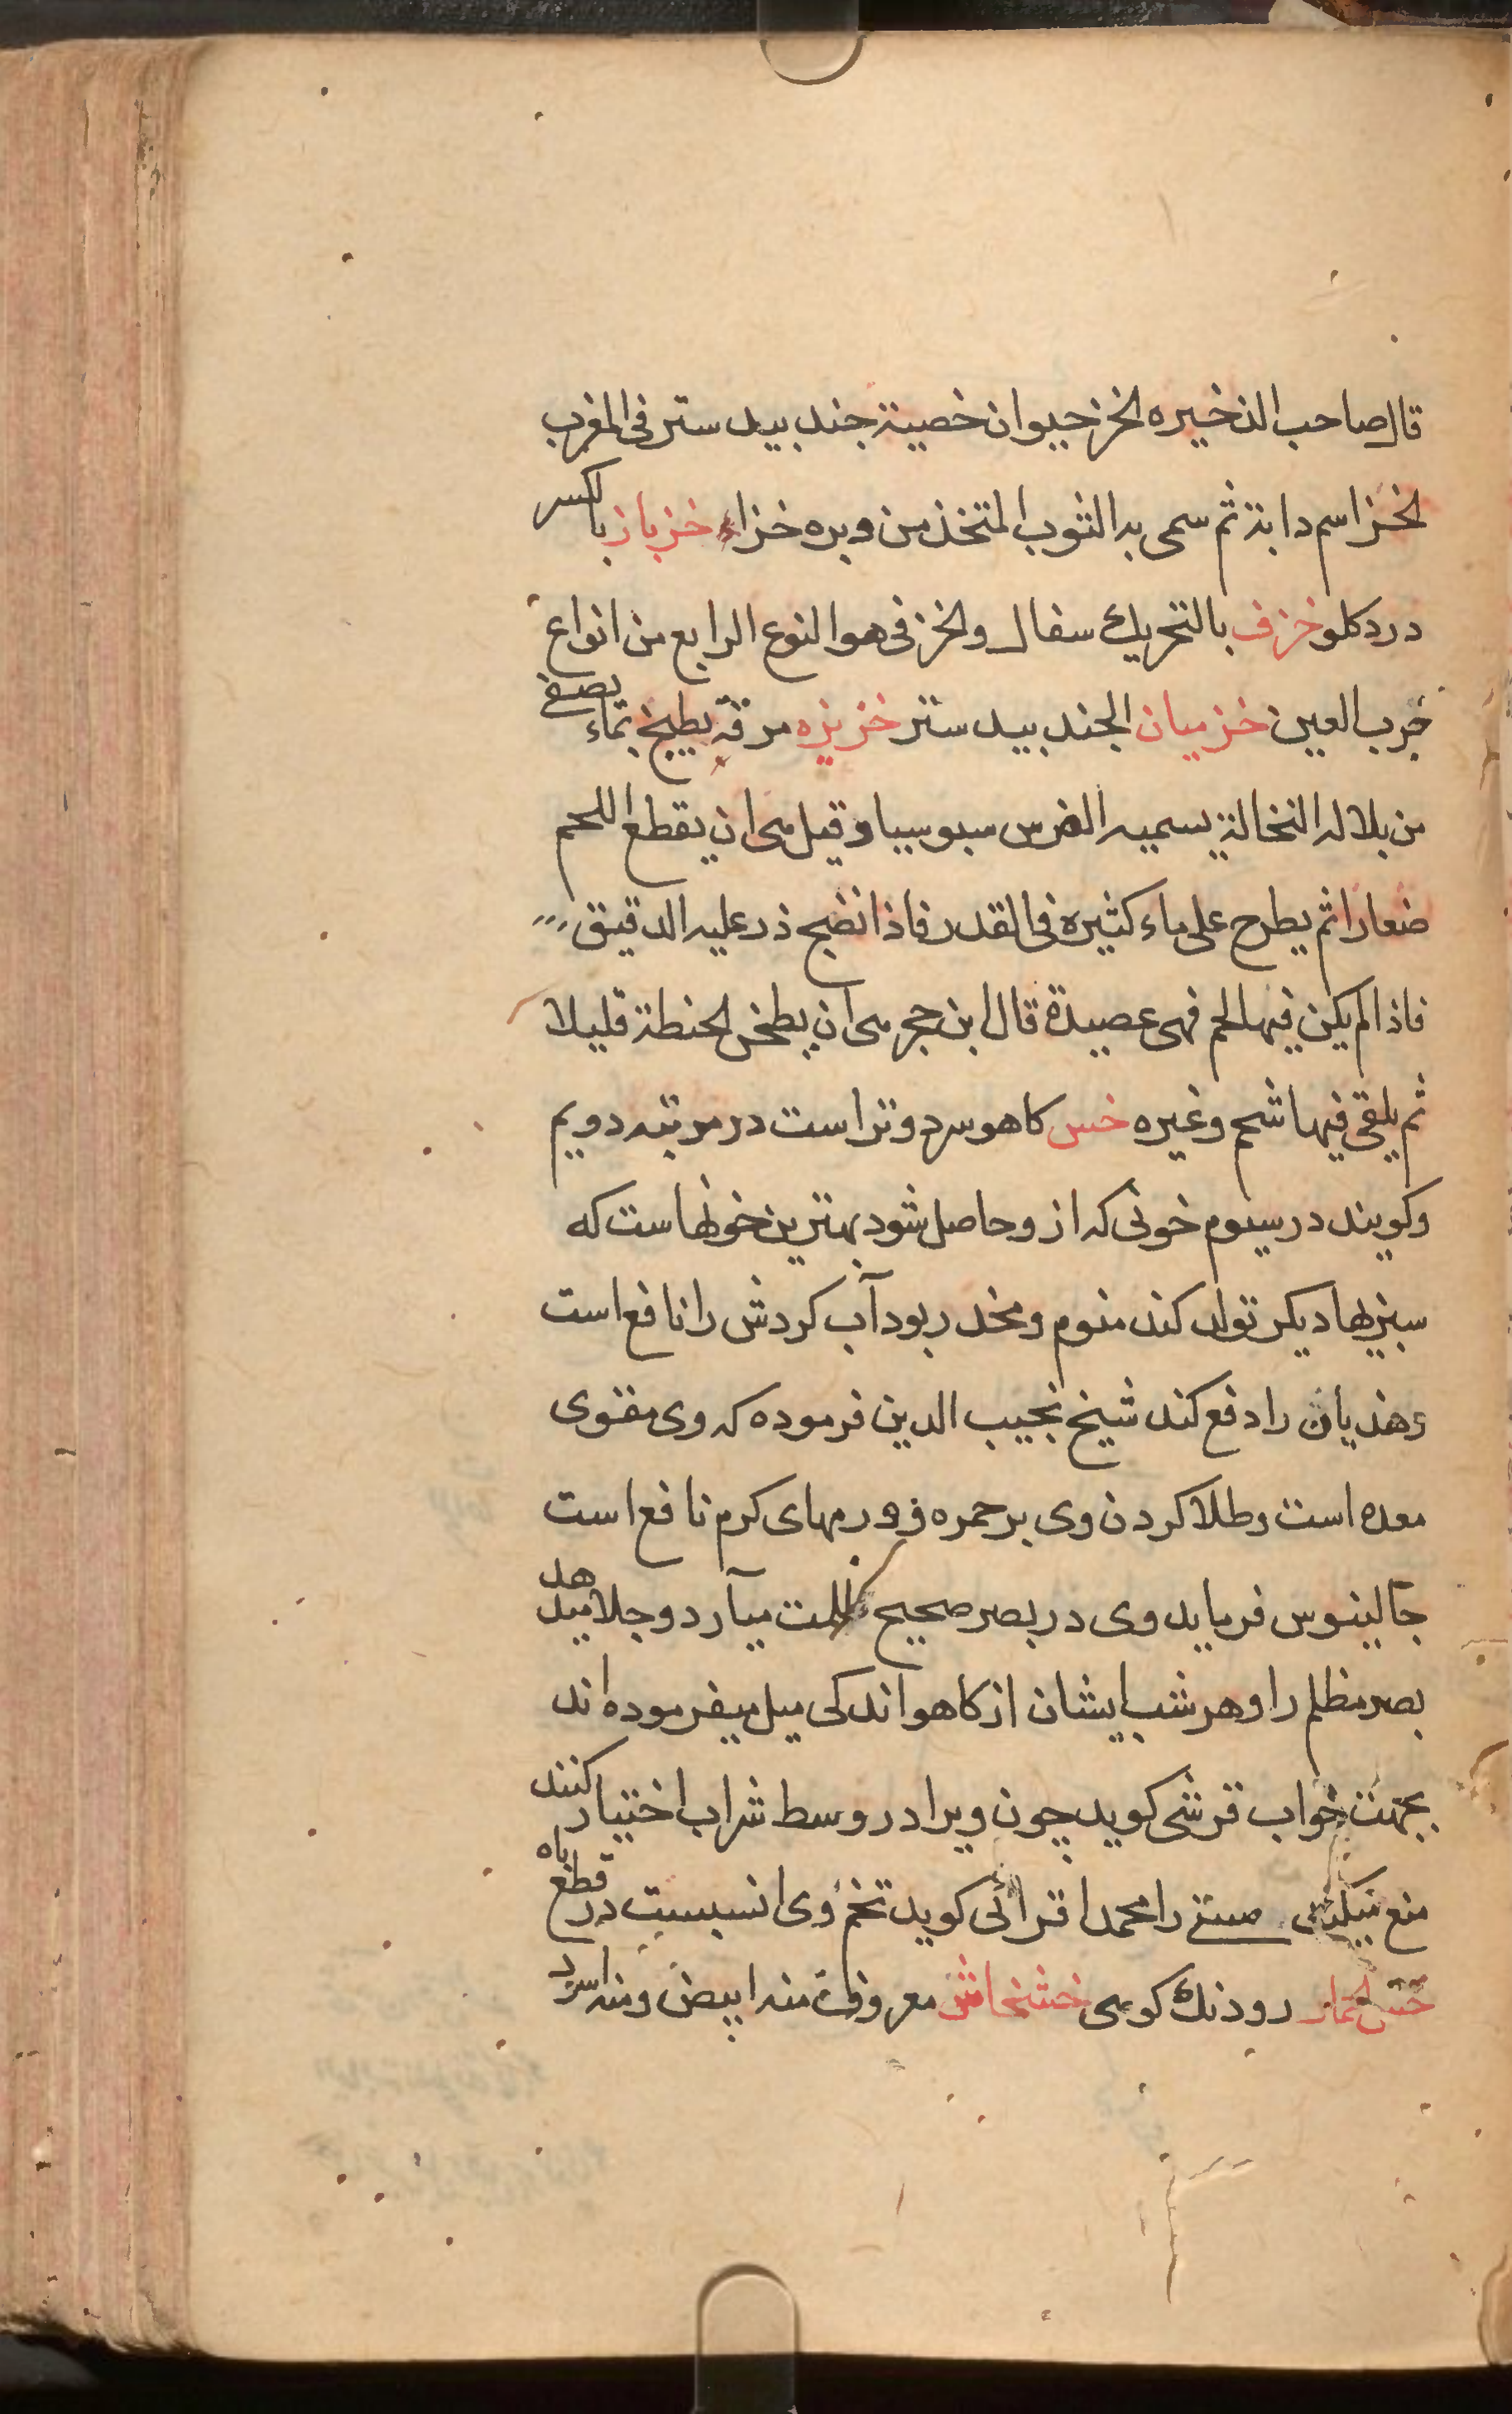 قال صاحب الذخیره الخز حیوان خصیته جند بیدستر فی المغرب
الخز اسم دابة ثم سمی به الثوب المتخذ من وبره خزاء خزباز بالکسر
درد کلو خزف بالتحریك سفال والخزفی هو النوع الرابع من انواع
جرب العین خزمیان الجند بیدستر خزیزه مرقة یطبخ بماء یصفی
من بلاله النخالة یسمیه الفرس سبوسبا و قیل هی ان یقطع اللحم
صغارا ثم یطرح علی ماء کثیره فی القدر فاذا نضج ذر علیه الدقیق
فاذا لم یکن فیها لحم فهی عصیدة قال ابن حجر هی ان یطحن الحنطة قلیلا
ثم یلقی فیها شحم وغیره خس کاهو سرد و تر است در مرتبه دویم
وکویند در سیوم خونی که از و حاصل شود بهترین خونها است که
سبزیها دیکر تولد کند منوم و مخدر بود آب کردش را نافع است
وهذیان را دفع کند شیخ نجیب الدین فرموده که وی مقوی
معده است وطلا کردن وی بر حمره و ورمهای کرم نافع است
جالینوس فرماید وی در بصر صحیح ظلمت میآرد و جلا میدهد
بصر مظلم را و هر شب ایشان از کاهو اندکی میل میفرموده اند
بجهت خواب قرشی کوید چون ویرا در وسط شراب اختیار کنند
منع میکند مستی را محمد اقرائی کوید تخم وی انسبست در قطع باه
خس الحمار رودنك کوهی خشخاش معروف منه ابیض ومنه اسود